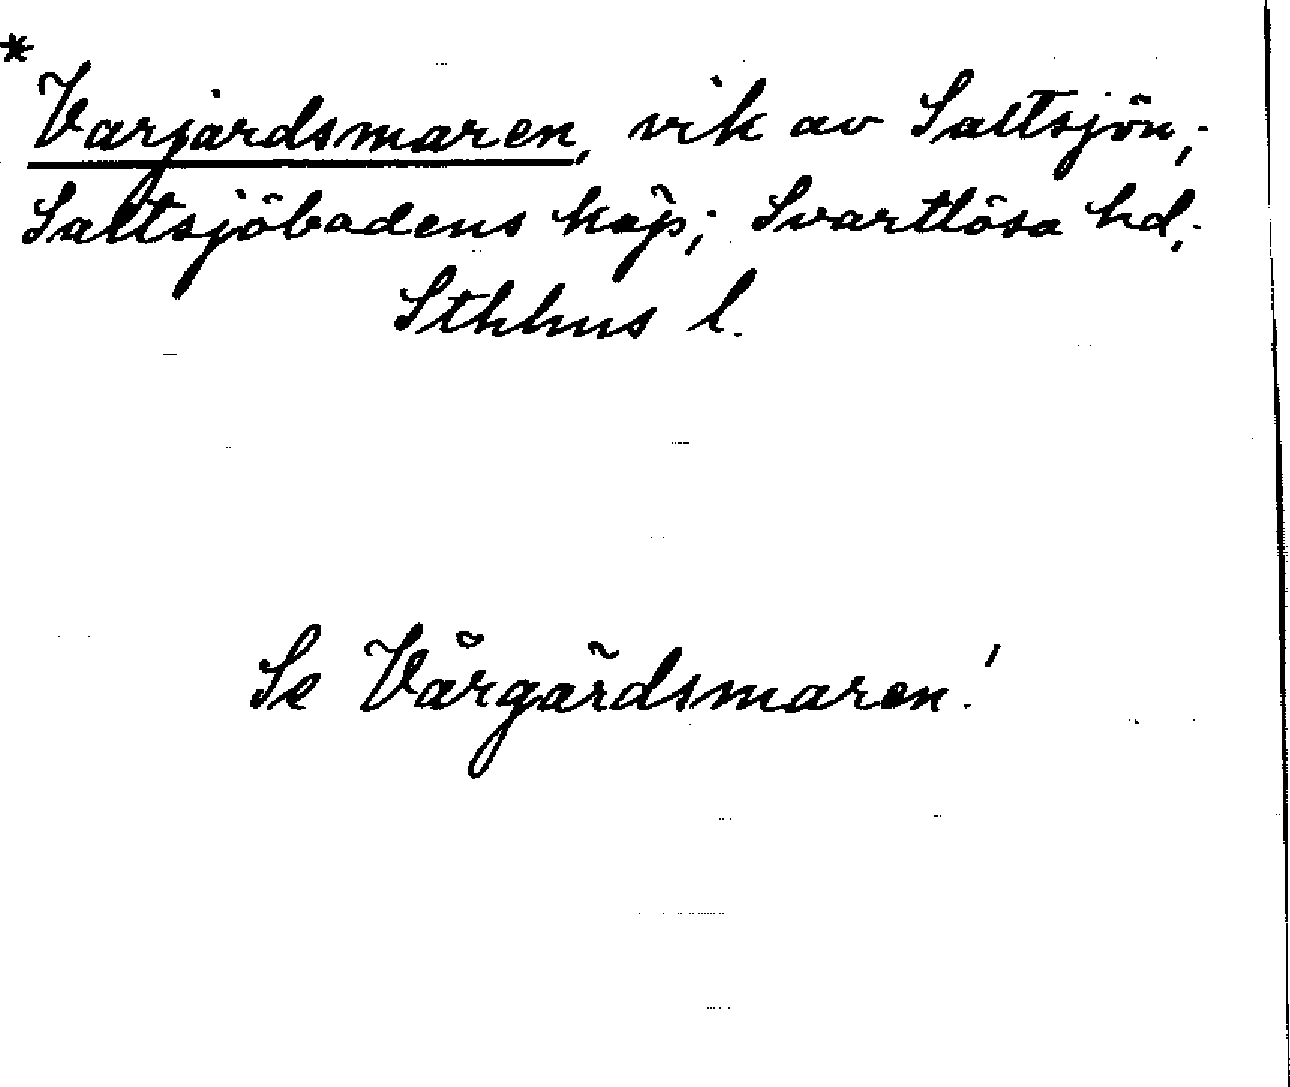 *
Varjardsmaren, vik av Saltsjön,
Saltsjöbadens köp; Svartlösa hd,
Sthlms l.
Se Vårgärdsmaren!